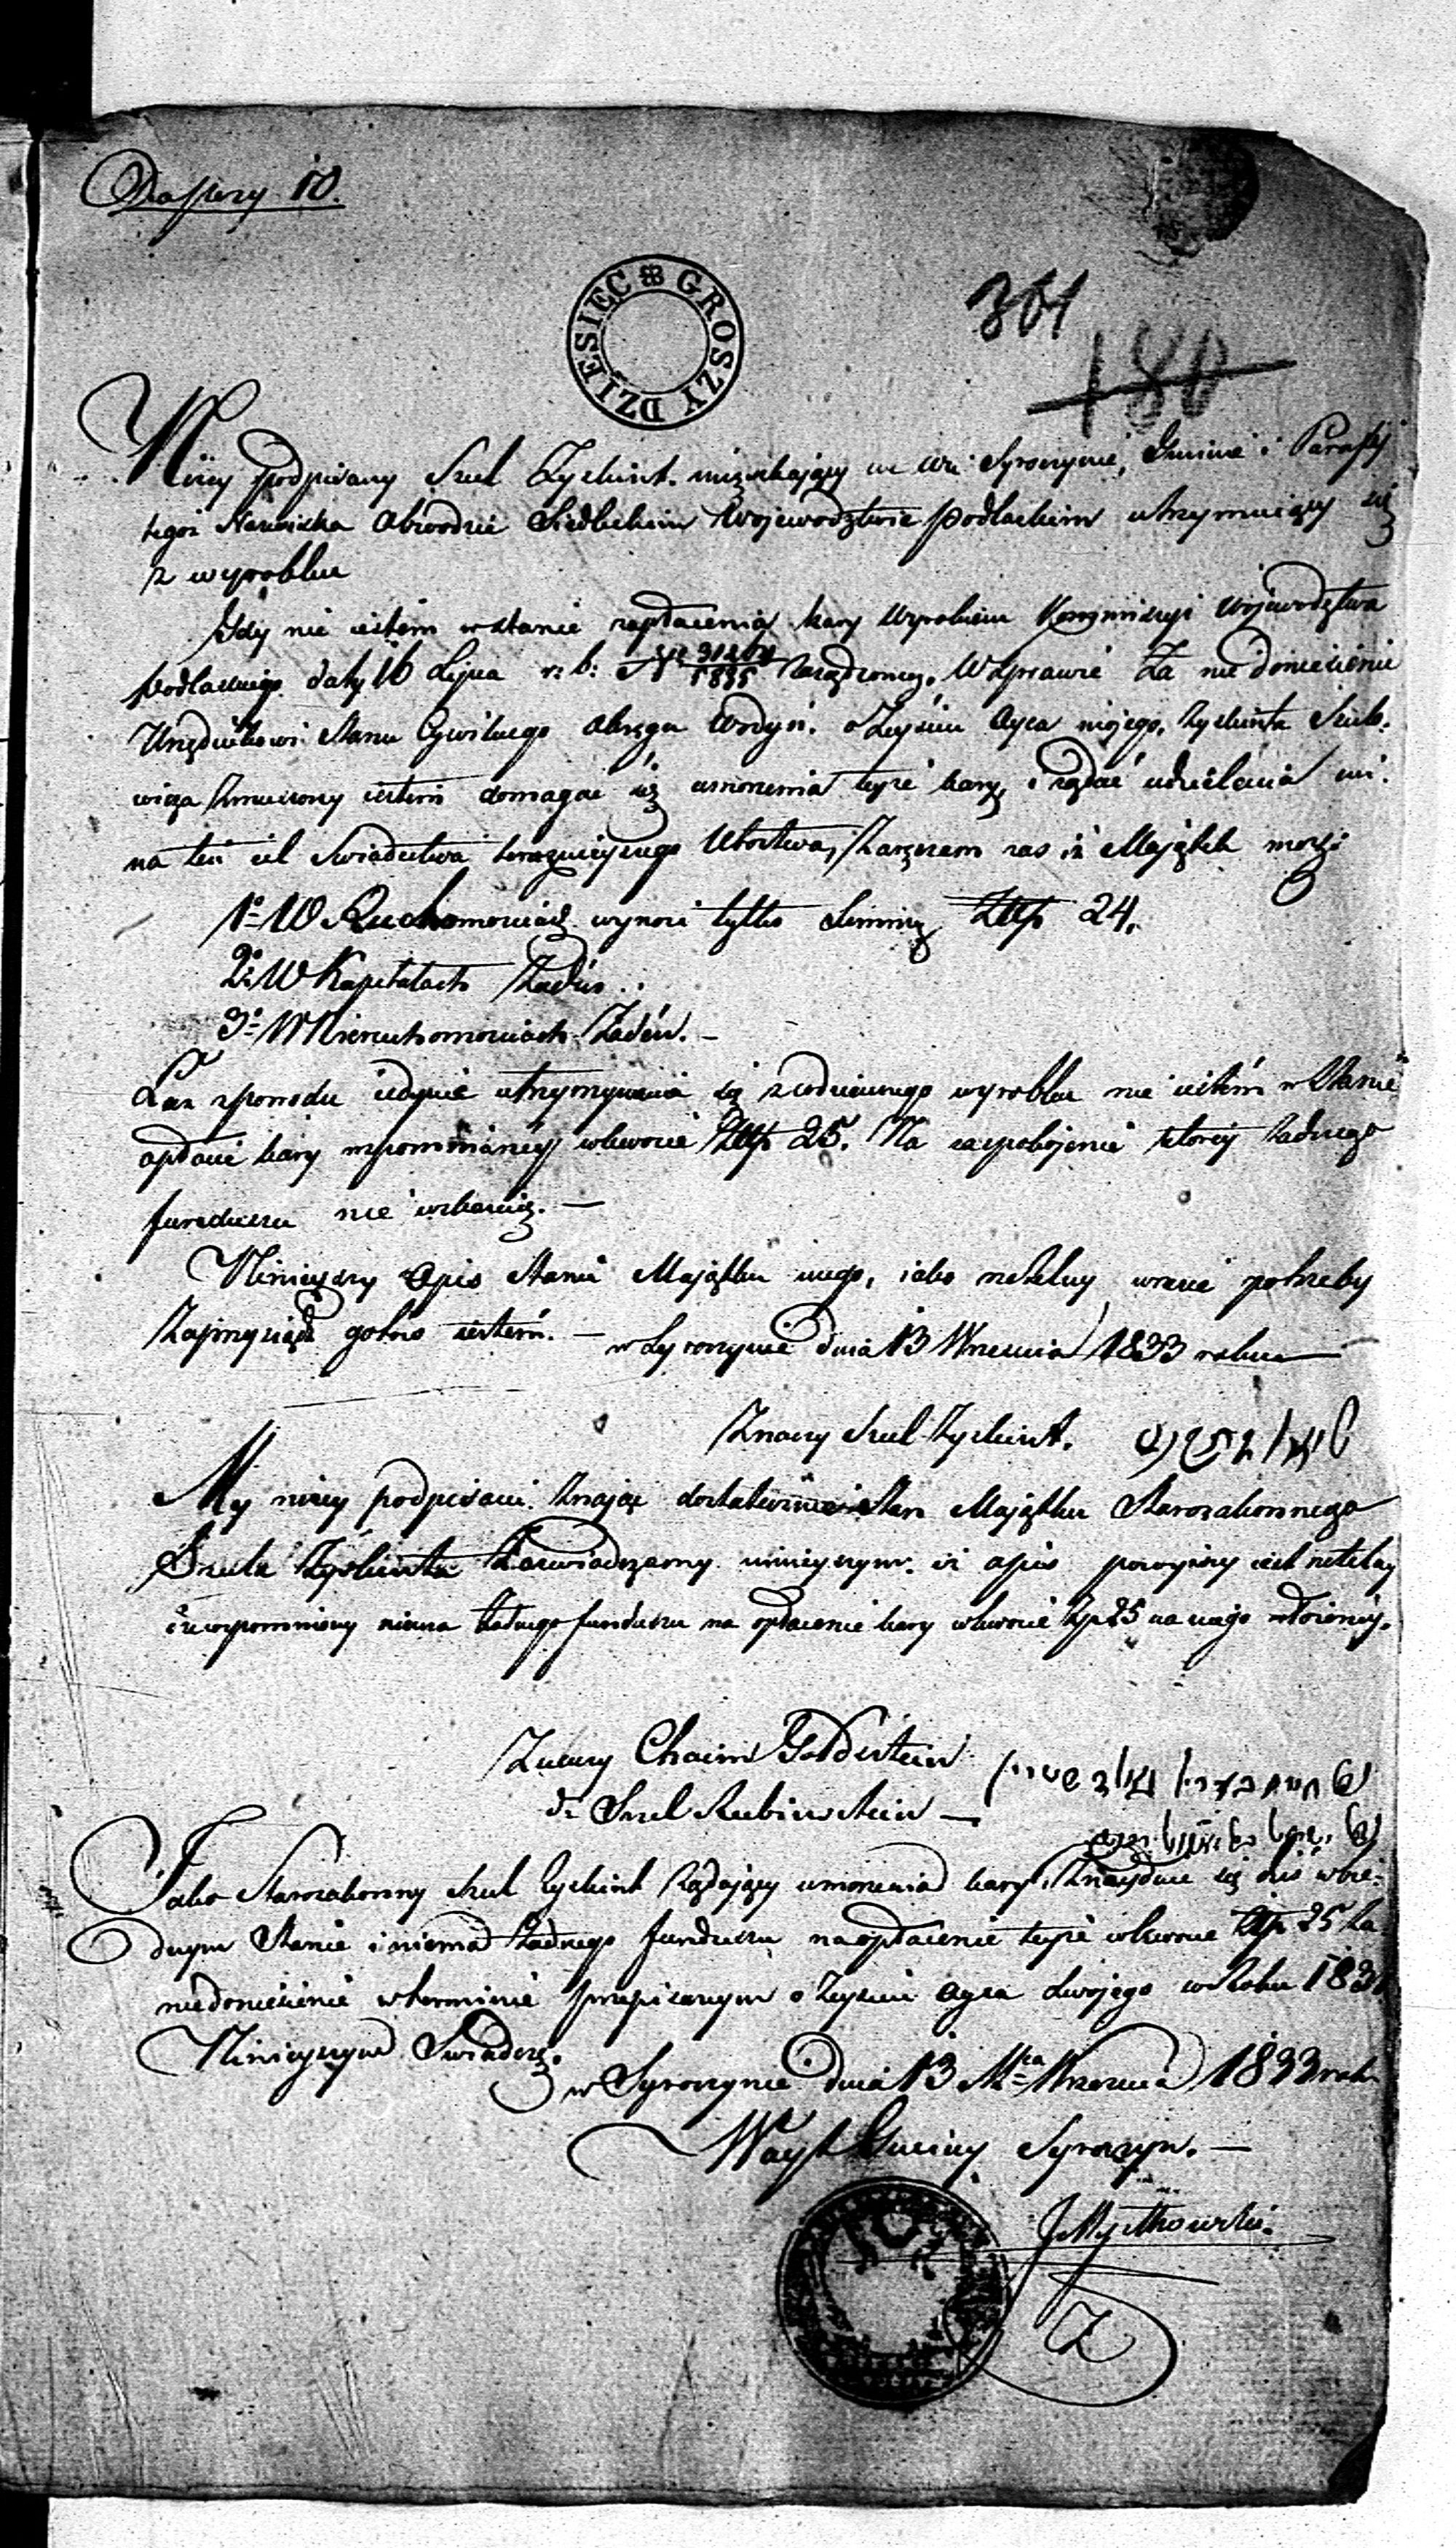 Gro szy 10.
GROSZY DZIESIEC
301
180
Niżey podpisany Szul Zyskint. mieszkaiący we wsi Syroczynie, Gminie i Parafij
tegoż Nazwiska Obwodzie Siedleckim Woiewodztwie Podlaskim utrzymuiący się
z wyrobku
Gdy nie iestem w stanie zapłacenia kary Wyrokiem Kommissyi Woiewodztwa
Podlaskiego daty 16 Lipca r: b: N zarządzoney, W sprawie Za nie doniesienie
Urzędnikowi Stanu Cywilnego Okręgu Wodyń. o Zeyściu Oyca mojego, Zyskinta Szulo-
wicza Zmuszony iestem domagać się umorzenia teyże kary, i żądać udzielenia mi
na ten cel Swiadectwa teraznieyszego Ubostwa, Zaręczam zaś iż Maiątek moy:
1o W Ruchomościach wynosi tylko Summę Złp 24.
2o W Kapitałach Żaden..
3o W Nieruchomościach Żaden. –
Zaś z powodu iedynie utrzymywania się z codziennego wyrobku nie iestem w Stanie
opłacić kary wspomnianéy w kwocie Złp 25. Na zaspokojenie ktorey żadnego
funduszu nie wskazuię. –
Ninieyszy Opis Stanu Maiątku mego, iako rzetelny w razie potrzeby
Zaprzysiądz gotow iestem. – w Syroczynie dnia 13 Września 1833 roku
Znaczy Szul Zyskint. שאול זיסקינט
My niżey podpisani Znaiąc dostatecznie Stan Maiątku Starozakonnego
Szula Zyskinta Zaswiadczamy ninieyszym. iż opis powyższy iest rzetelny
i że wspomniony niema żadnego funduszu na opłacenie kary w kwocie Zp 25 na niego włożonéy.
Znaczy Chaim Goldsztein
d: Szul Rubinsztein –
Jako Starozakonny Szul Zyskint Żądaiący umorzenia kary, Znayduie się dziś w bie-
dnym Stanie i niema Żadnego funduszu na opłacenie teyże w kwocie Złp 25 Za
niedoniesienie w terminie przepisanym o Zeyściu Oyca swojego w Roku 183
Ninieyszym Swiadczę.
w Syroczynie dnia 13 Mca Września 1833 rok
Woyt Gminy Syroczyn. –